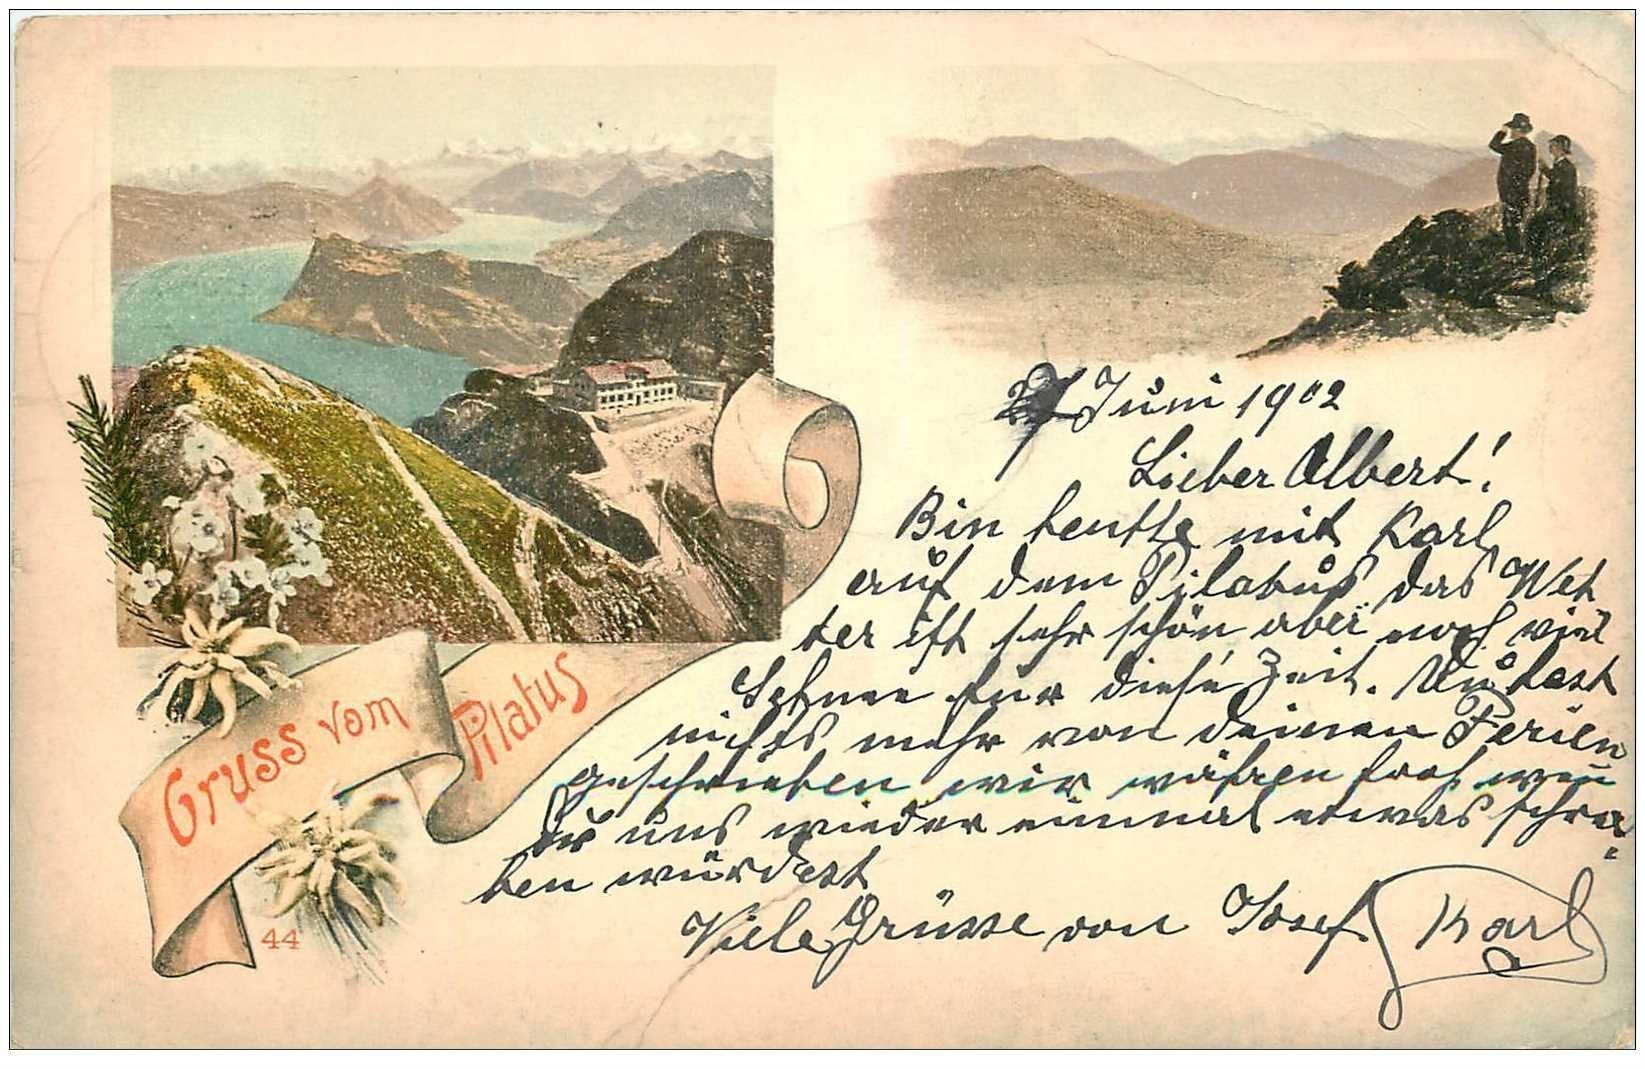 Gruss vom Pilatus
44
Juni 1902
Lieber Albert!
Bin heutte mit Karl
auf dem Pilatus das Wet
ter ist sehr schön aber noch viel
Schnee für diese Zeit. Du hast
nichts mehr von deinen Ferien
geschrieben wir währen froh wen
du uns wieder einmal etwas schrei
ben würdest
Viele Grüsse von Josef Karl